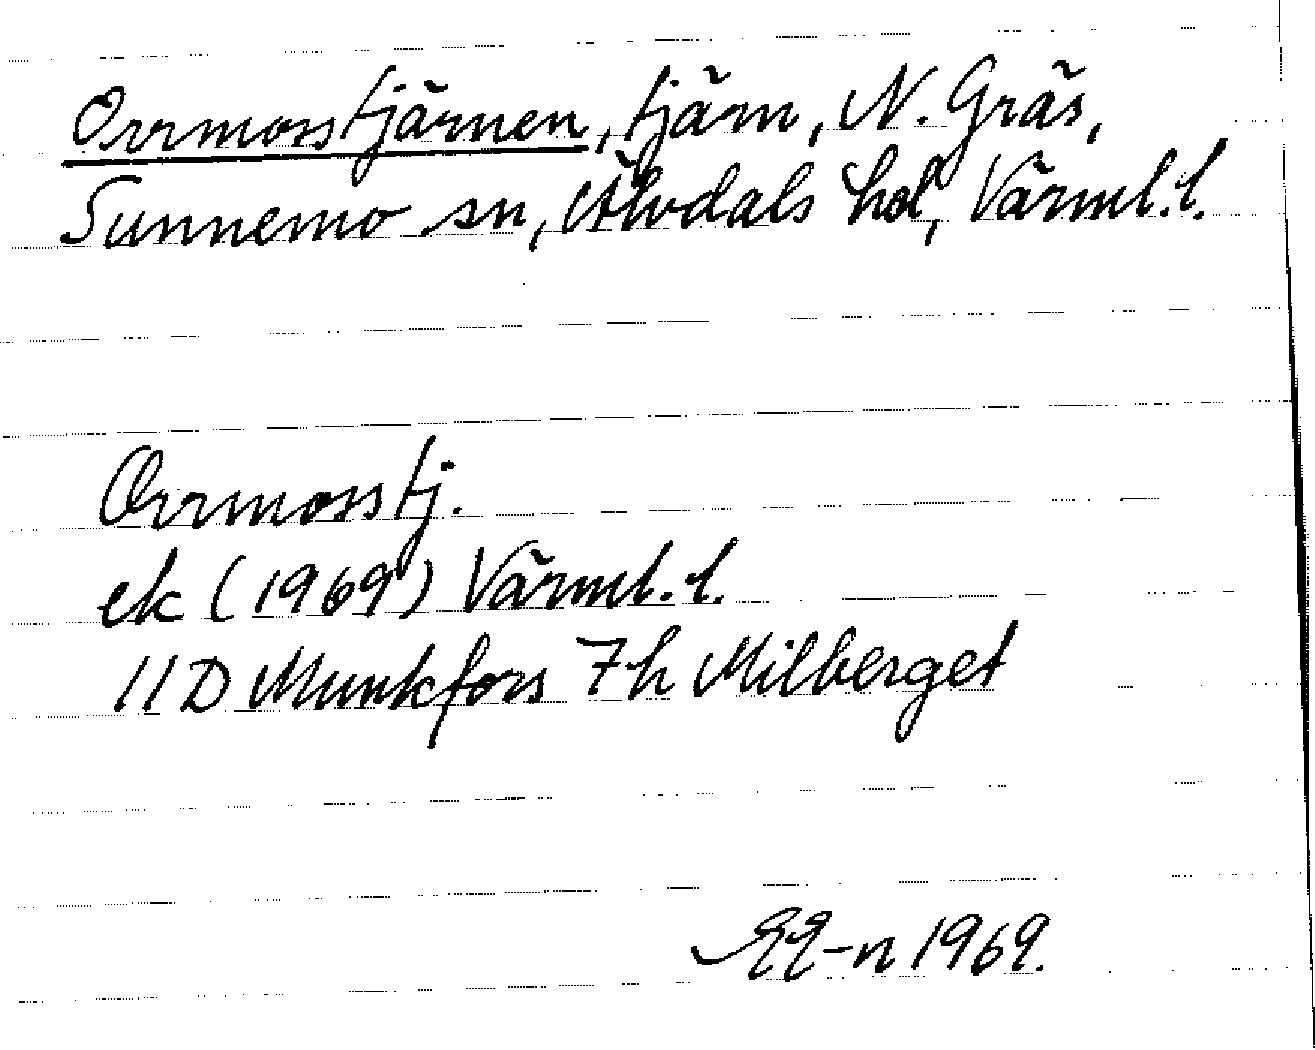 Orrmosstjärnen, tjärn, N. Gräs,
Sunnemo sn, Älvdals hd, Värml. l.
Orrmosstj.
ek (1969) Värml. l.
11D Munkfors 7h Milberget
EE-n 1969.